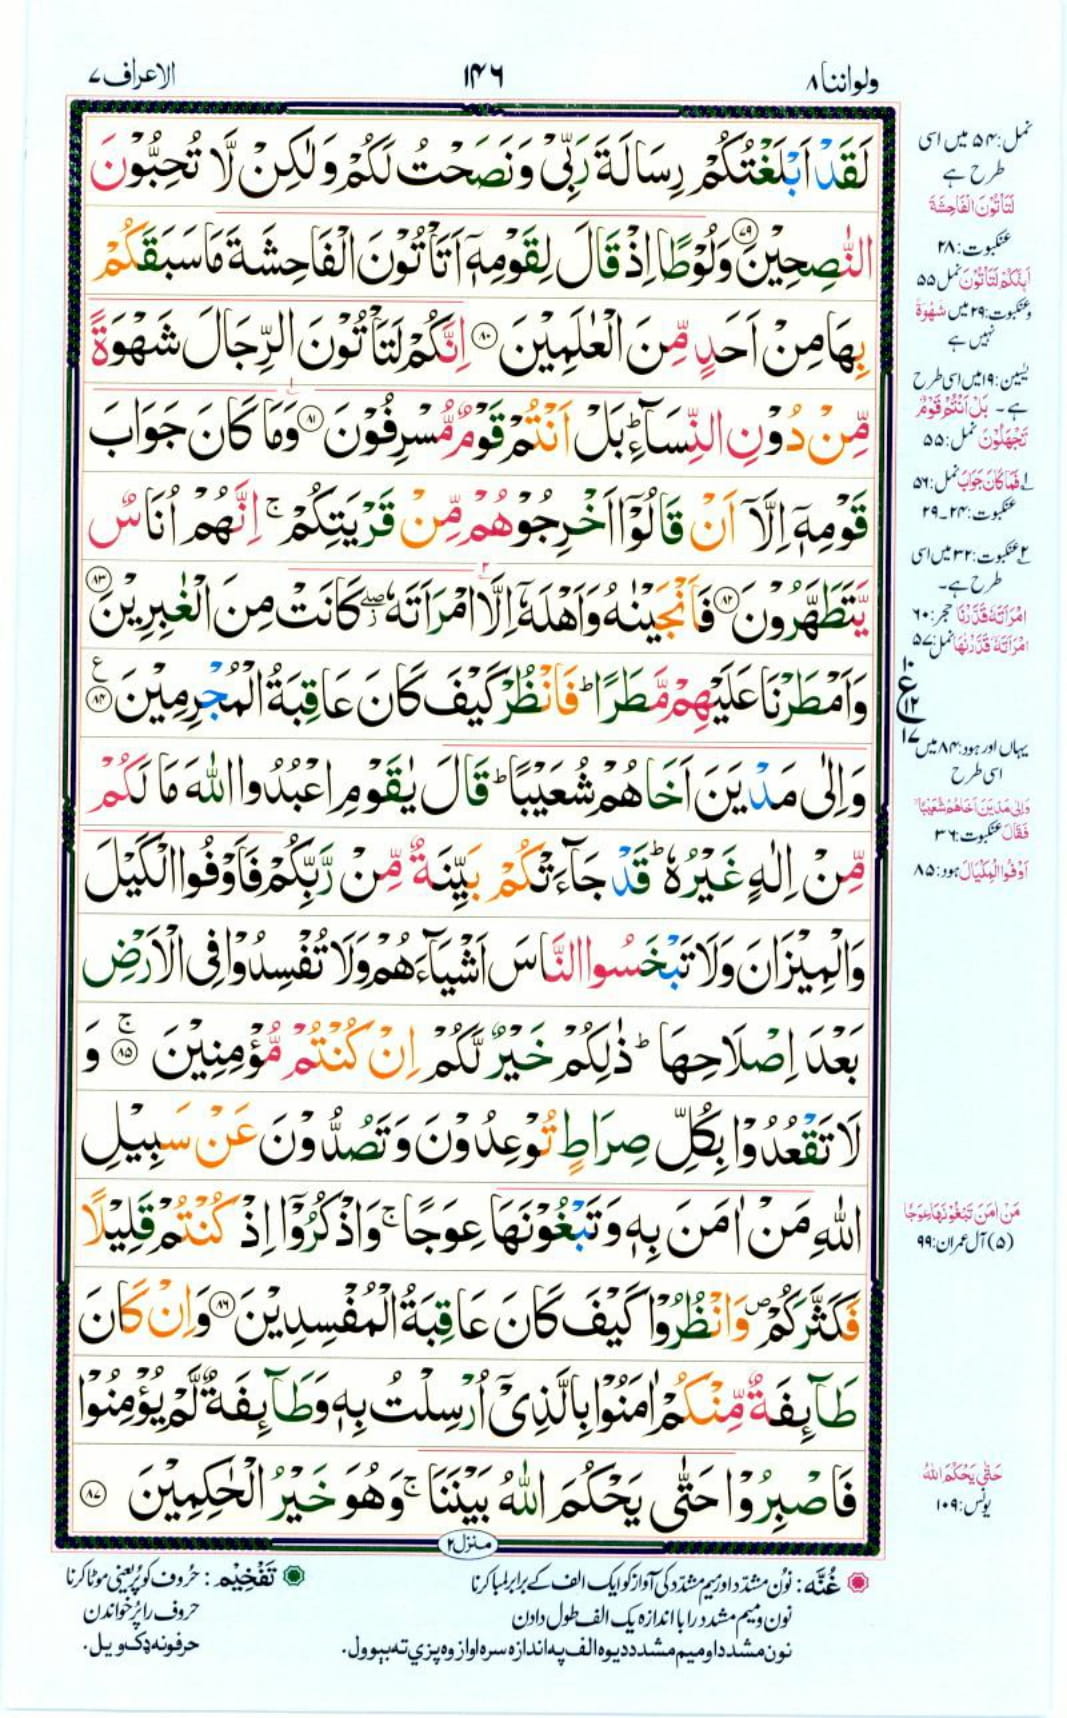 ولواننا ۸
۱۴۶
الاعراف ۷
لَقَدْ اَبْلَغْتُكُمْ رِسَالَةَ رَبِّیْ وَنَصَحْتُ لَكُمْ وَلٰكِنْ لَّا تُحِبُّوْنَ
النّٰصِحِیْنَ ۝۷۹ وَلُوْطًا اِذْ قَالَ لِقَوْمِهٖۤ اَتَاْتُوْنَ الْفَاحِشَةَ مَا سَبَقَكُمْ
بِهَا مِنْ اَحَدٍ مِّنَ الْعٰلَمِیْنَ ۝۸۰ اِنَّكُمْ لَتَاْتُوْنَ الرِّجَالَ شَهْوَةً
مِّنْ دُوْنِ النِّسَآءِ ؕ بَلْ اَنْتُمْ قَوْمٌ مُّسْرِفُوْنَ ۝۸۱ وَمَا كَانَ جَوَابَ
قَوْمِهٖۤ اِلَّاۤ اَنْ قَالُوْۤا اَخْرِجُوْهُمْ مِّنْ قَرْیَتِكُمْ ۚ اِنَّهُمْ اُنَاسٌ
یَّتَطَهَّرُوْنَ ۝۸۲ فَاَنْجَیْنٰهُ وَاَهْلَهٗۤ اِلَّا امْرَاَتَهٗ ۖ كَانَتْ مِنَ الْغٰبِرِیْنَ ۝۸۳
وَاَمْطَرْنَا عَلَیْهِمْ مَّطَرًا ؕ فَانْظُرْ كَیْفَ كَانَ عَاقِبَةُ الْمُجْرِمِیْنَ ۝۸۴ ع
وَاِلٰی مَدْیَنَ اَخَاهُمْ شُعَیْبًا ؕ قَالَ یٰقَوْمِ اعْبُدُوا اللّٰهَ مَا لَكُمْ
مِّنْ اِلٰهٍ غَیْرُهٗ ؕ قَدْ جَآءَتْكُمْ بَیِّنَةٌ مِّنْ رَّبِّكُمْ فَاَوْفُوا الْكَیْلَ
وَالْمِیْزَانَ وَلَا تَبْخَسُوا النَّاسَ اَشْیَآءَهُمْ وَلَا تُفْسِدُوْا فِی الْاَرْضِ
بَعْدَ اِصْلَاحِهَا ؕ ذٰلِكُمْ خَیْرٌ لَّكُمْ اِنْ كُنْتُمْ مُّؤْمِنِیْنَ ۝۸۵ ۚ وَ
لَا تَقْعُدُوْا بِكُلِّ صِرَاطٍ تُوْعِدُوْنَ وَتَصُدُّوْنَ عَنْ سَبِیْلِ
اللّٰهِ مَنْ اٰمَنَ بِهٖ وَتَبْغُوْنَهَا عِوَجًا ۚ وَاذْكُرُوْۤا اِذْ كُنْتُمْ قَلِیْلًا
فَكَثَّرَكُمْ ۪ وَانْظُرُوْا كَیْفَ كَانَ عَاقِبَةُ الْمُفْسِدِیْنَ ۝۸۶ وَاِنْ كَانَ
طَآىِٕفَةٌ مِّنْكُمْ اٰمَنُوْا بِالَّذِیْۤ اُرْسِلْتُ بِهٖ وَطَآىِٕفَةٌ لَّمْ یُؤْمِنُوْا
فَاصْبِرُوْا حَتّٰی یَحْكُمَ اللّٰهُ بَیْنَنَا ۚ وَهُوَ خَیْرُ الْحٰكِمِیْنَ ۝۸۷
منزل ۲
نمل: ۵۴ میں اسی
طرح ہے
لَتَاْتُوْنَ الْفَاحِشَةَ
عنکبوت: ۲۸
اَىِٕنَّكُمْ لَتَاْتُوْنَ نمل ۵۵
وعنکبوت: ۲۹ میں شَهْوَةً
نہیں ہے
یٰسین: ۱۹ میں اسی طرح
ہے۔ بَلْ اَنْتُمْ قَوْمٌ
تَجْهَلُوْنَ نمل: ۵۵
۱؎ فَمَا كَانَ جَوَابَ نمل: ۵۶
عنکبوت: ۲۴۔۲۹
۲؎ عنکبوت: ۳۲ میں اسی
طرح ہے۔
امْرَاَتَهٗ قَدَّرْنَا حجر: ۶۰
امْرَاَتَهٗ قَدَّرْنٰهَا نمل: ۵۷
۱۰
ع
۱۲
۱۷
یہاں اور ہود: ۸۴ میں
اسی طرح
وَاِلٰی مَدْیَنَ اَخَاهُمْ شُعَیْبًا
فَقَالَ عنکبوت: ۳۶
اَوْفُوا الْمِكْیَالَ ہود: ۸۵
مَنْ اٰمَنَ تَبْغُوْنَهَا عِوَجًا
(۵) آل عمران: ۹۹
حَتّٰی یَحْكُمَ اللّٰهُ
یونس: ۱۰۹
غُنَّه: نون مشدّد اور میم مشدّد کی آواز کو ایک الف کے برابر لمبا کرنا
نون و میم مشدد را با اندازہ یک الف طول دادن
نون مشدد او میم مشدد دیوه الف په اندازه سره اواز وه پزي ته بېوول.
تَفْخِیْم: حُروف کو پُر یعنی موٹا کرنا
حروف را پُر خواندن
حرفونه ډک ویل.